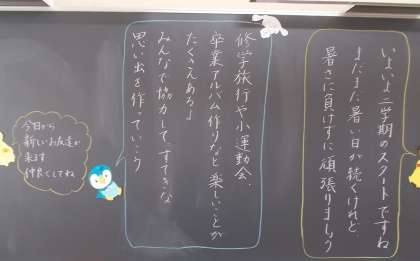 いよいよ二学期のスタートですね
まだまだ暑い日が続くけれど、
暑さに負けずに頑張りましょう
修学旅行や小運動会、
卒業アルバム作りなど楽しいことが
たくさんあるよ
みんなで協力して、すてきな
思い出を作っていこう
今日から
新しいお友達が
来ます
仲良くしてね